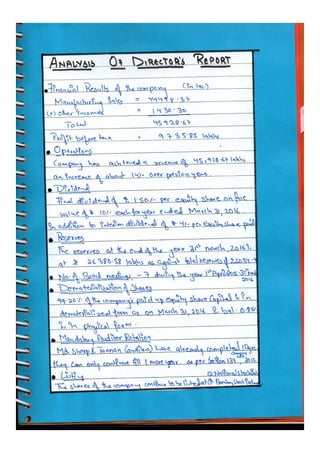 ANALYSIS OF DIRECTOR'S REPORT
• Financial Results of the company (in lac)
Manufacturing Sales =
(+) Other Incomes = 1430.30
Total 45928.67
Profit before tax = 9735.85 lakhs
• Operations
Company has achieved a revenue of 45,928.67 lakhs
an increase of about 14% over previous year.
• Dividend
Final dividend of ₹ 1.50/- per equity share on face
value of ₹ 10/- each for year ended March 31, 2016
In addition to interim dividend of ₹ 4/- per equity share paid
• Reserves
The reserves at the end of the year 31st march, 2016
at ₹ 26380.58 lakhs as against total reserves of
• No. of Board meetings - 7 during the year 1st April 2015 -
2016
• Dematerialization of Shares
99.20% of the company's paid up equity share Capital is in
dematerialized form as on March 31, 2016 & bal.
is in physical form.
• Mandatory Auditor Rotation
M/s Sharp & Tannan (auditors) have already completed
they can only continue till 1 more year as per Section 139, 2013
• Listing
The shares of the company continue to be listed at Bombay Stock